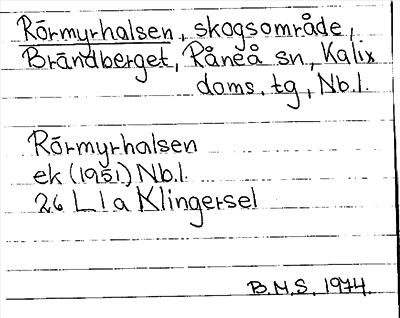 Rörmyrhalsen, skogsområde,
Brändberget, Råneå sn., Kalix
doms. tg, Nb.l.
Rörmyrhalsen
ek (1951) Nb.l.
26 L 1 a Klingersel
B.M.S. 1974.